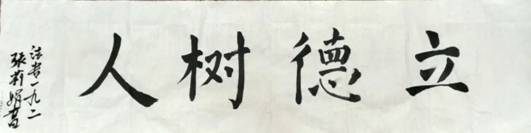 立德树人
法书一九二
张莉娟書